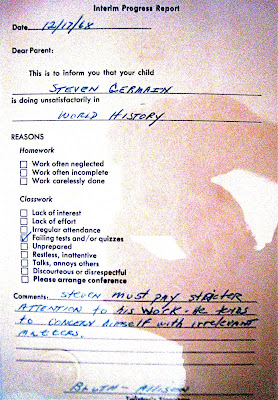 Interim Progress Report
Date 12/17/68
Dear Parent:
This is to inform you that your child
STEVEN GERMAIN
is doing unsatisfactorily in
WORLD HISTORY
REASONS
Homework
Work often neglected
Work often incomplete
Work carelessly done
Classwork
Lack of interest
Lack of effort
Irregular attendance
Failing tests and/or quizzes
Unprepared
Restless, inattentive
Talks, annoys others
Discourteous or disrespectful
Please arrange conference
Comments: STEVEN MUST PAY STRICTER
ATTENTION TO HIS WORK. HE TENDS
TO CONCERN HIMSELF WITH IRRELEVANT
MATTERS.